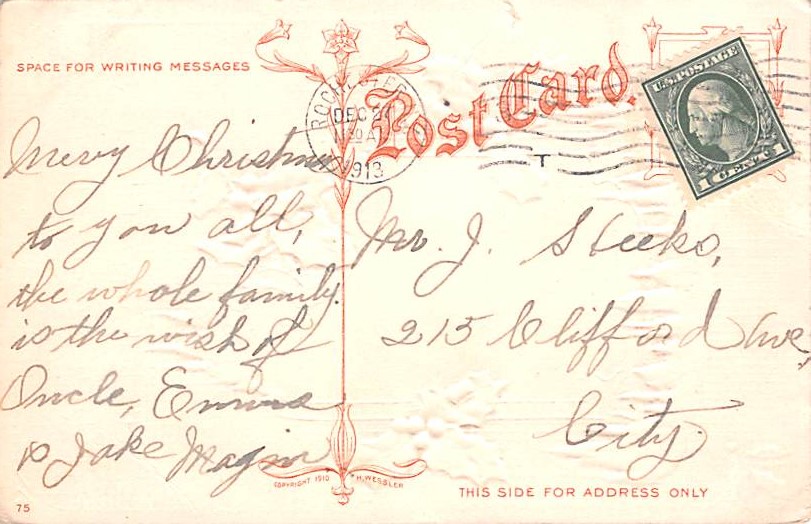 SPACE FOR WRITING MESSAGES
Post Card.
ROCHESTER
DEC 2
1913
U.S. POSTAGE
1 CENT 1
Merry Christmas
to you all,
the whole family.
is the wish of
Oncle, Emma
Jake Magin
Mr. J. Steeks,
215 Clifford Ave,
City.
COPYRIGHT 1910 H. WESSLER
THIS SIDE FOR ADDRESS ONLY
75